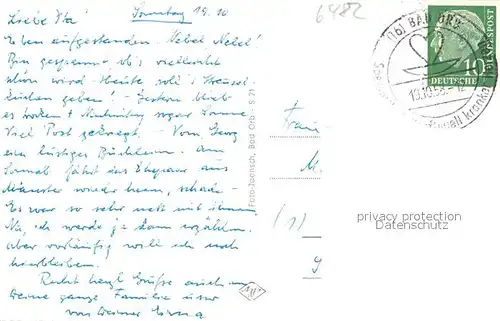 Liebe Ita! Sonntag 19.10
Eben aufgestanden. Nebel Nebel!
Bin gespannt, ob's vielleicht
schön wird. Heute soll's Streusel-
kuchen geben! – Gestern blieb
es trocken + Nachmittag sogar Sonne
Viel Post gekriegt. – Vom Georg
ein lustiges Büchlein. Am
fährt das Ehepaar aus
Münster wieder heim, schade
Es war so sehr nett mit ihnen
Na, ich werde ja dann erzählen.
aber vorläufig will ich noch
hierbleiben.
Recht herzl. Grüße auch an
Deine ganze Familie
von Deiner Erna
6482
(16) BAD ORB
19.10.58
10
DEUTSCHE BUNDESPOST
Foto-Joensch, Bad Orb - S 21
Frau
M.
(1)
g
privacy protection
Datenschutz